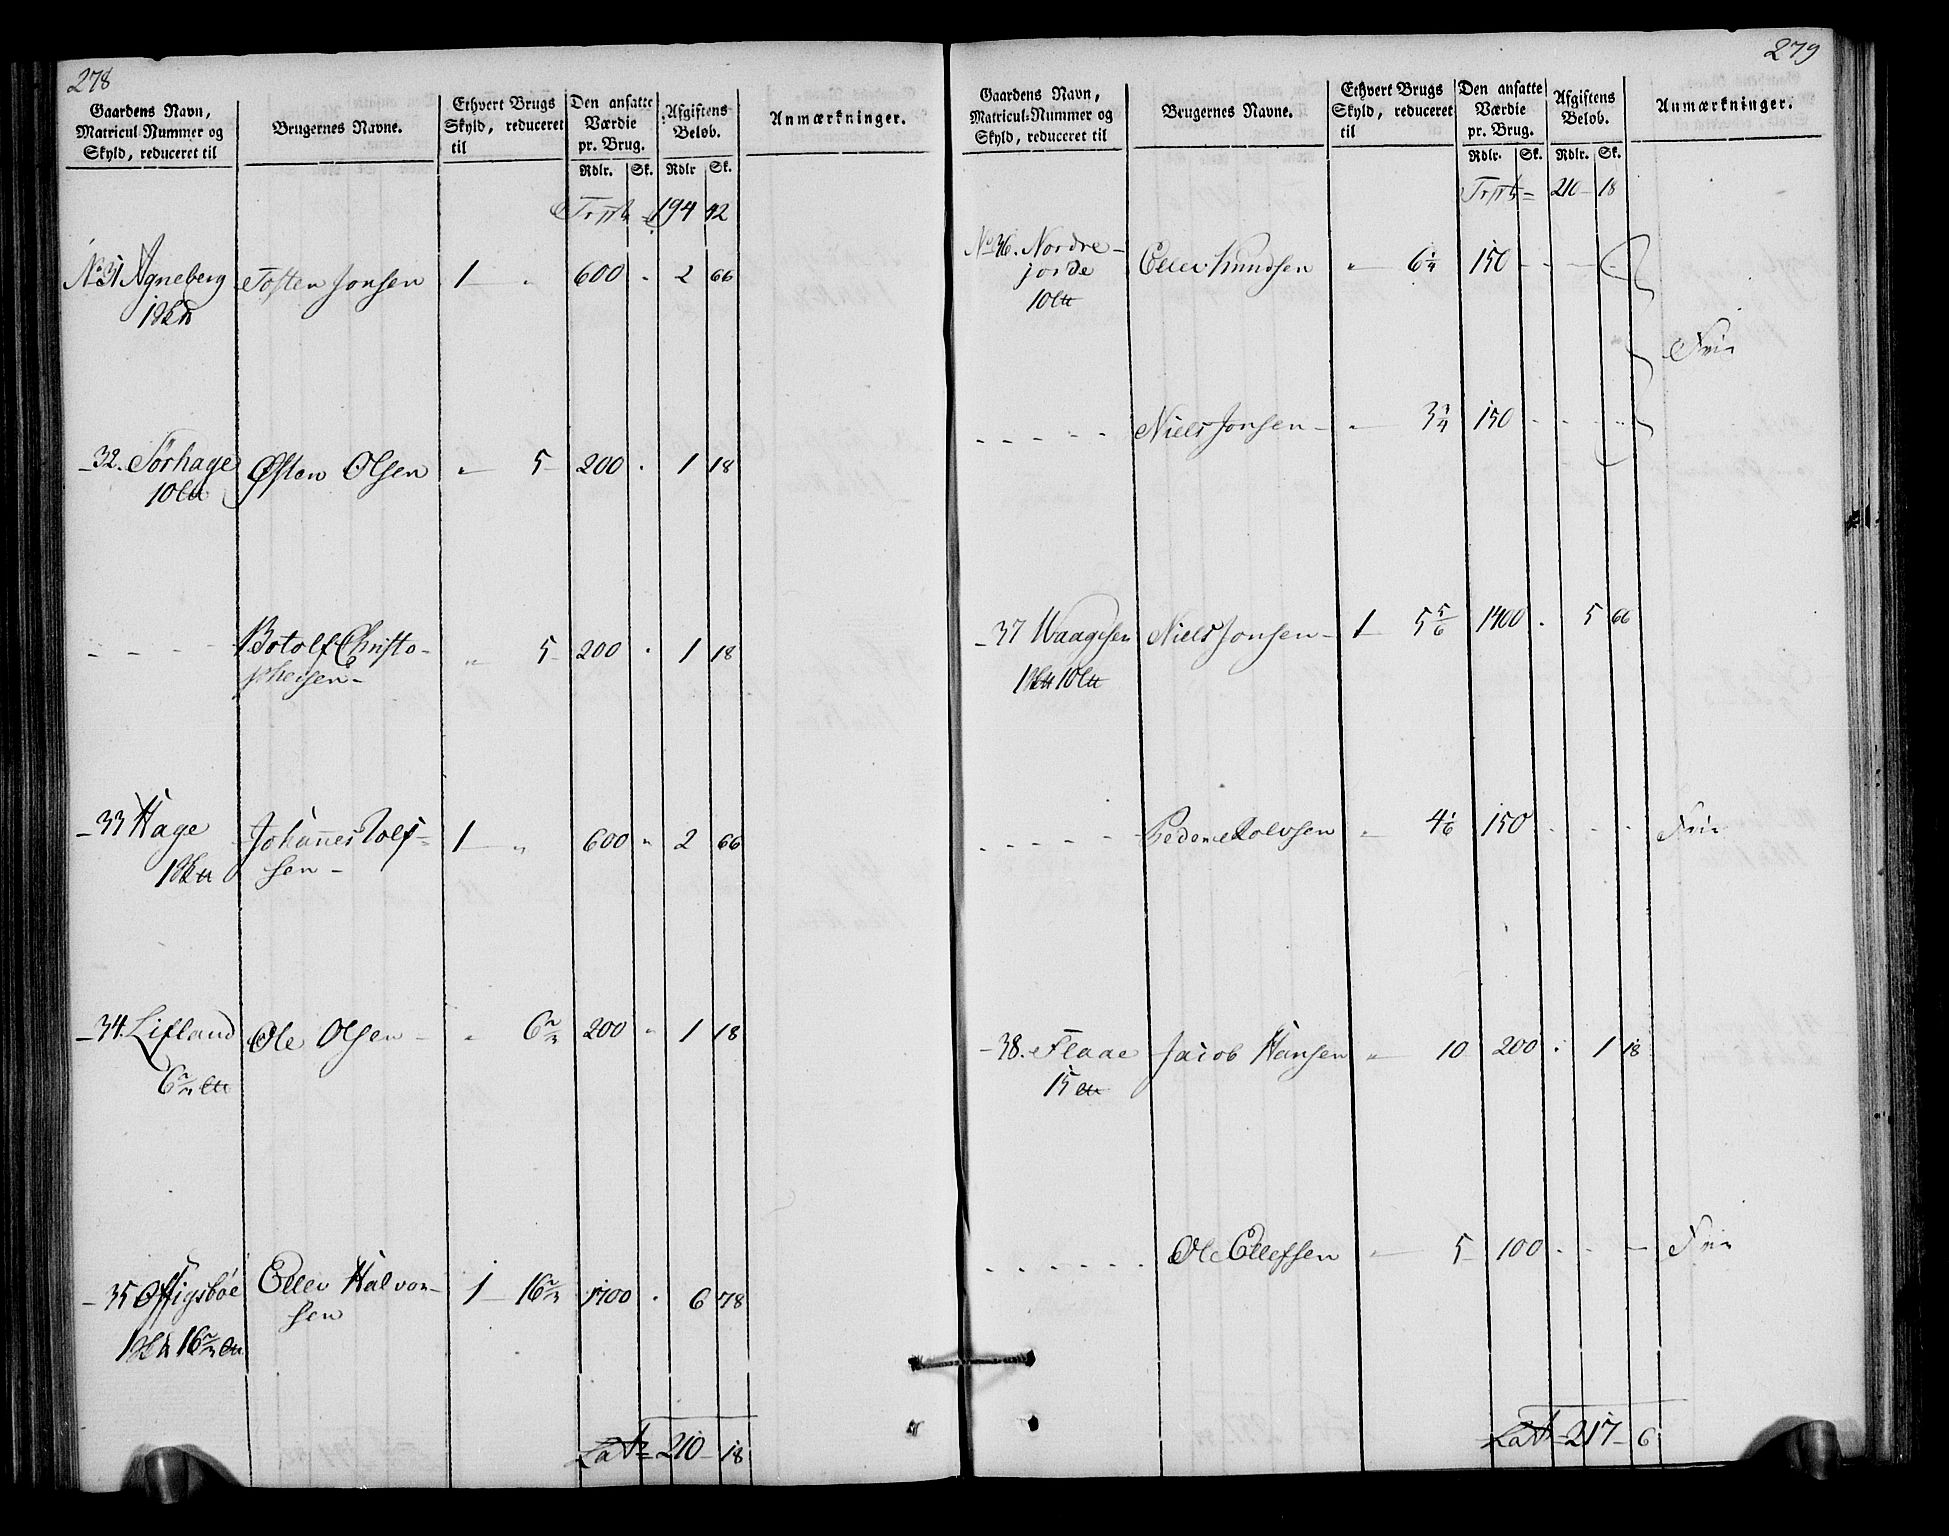 278
Gaardens Navn, Matricul-Nummer og Skyld, reduceret til
Brugernes Navne.
Ethvert Brugs Skyld, reduceret til
Den ansatte Værdie pr. Brug.
Afgiftens Beløb.
Anmærkninger.
Rdlr. Sk. Rdlr Sk.
194 12
No 31 Agneberg Tosten Jonsen 1 " 600 " 2 66
32. Torhage Østen Olsen " 5 200 " 1 18
10
- - - - Botolf Christo-
phersen - " 5 200 " 1 18
33 Hage Johannes Rolf-
sen - 1 " 600 " 2 66
34. Lifland Ole Olsen - " 6 200 " 1 18
35 Ellev Halvor-
sen 1 16 1700 " 6 78
Lat 210 - 18
279
Gaardens Navn, Matricul-Nummer og Skyld, reduceret til
Brugernes Navne.
Ethvert Brugs Skyld, reduceret til
Den ansatte Værdie pr. Brug.
Afgiftens Beløb.
Anmærkninger.
Rdlr. Sk. Rdlr. Sk.
210 - 18
No 36. Nordre-
jorde Ellev Knudsen " 6 1/4 150 - - -
10
Frie
- - - - - Niels Jonsen - " 3 3/4 150 - - -
37 Waagesen Niels Jonsen - 1 5 5/6 1400 . 5 66
- - - - Peder Rolvsen " 4 1/6 150 - - - Frie
38. Flaae Jacob Hansen " 10 200 " 1 18
15
- - - - - - Ole Ellefsen " 5 100 - - - Frie
Lat 217 - 6